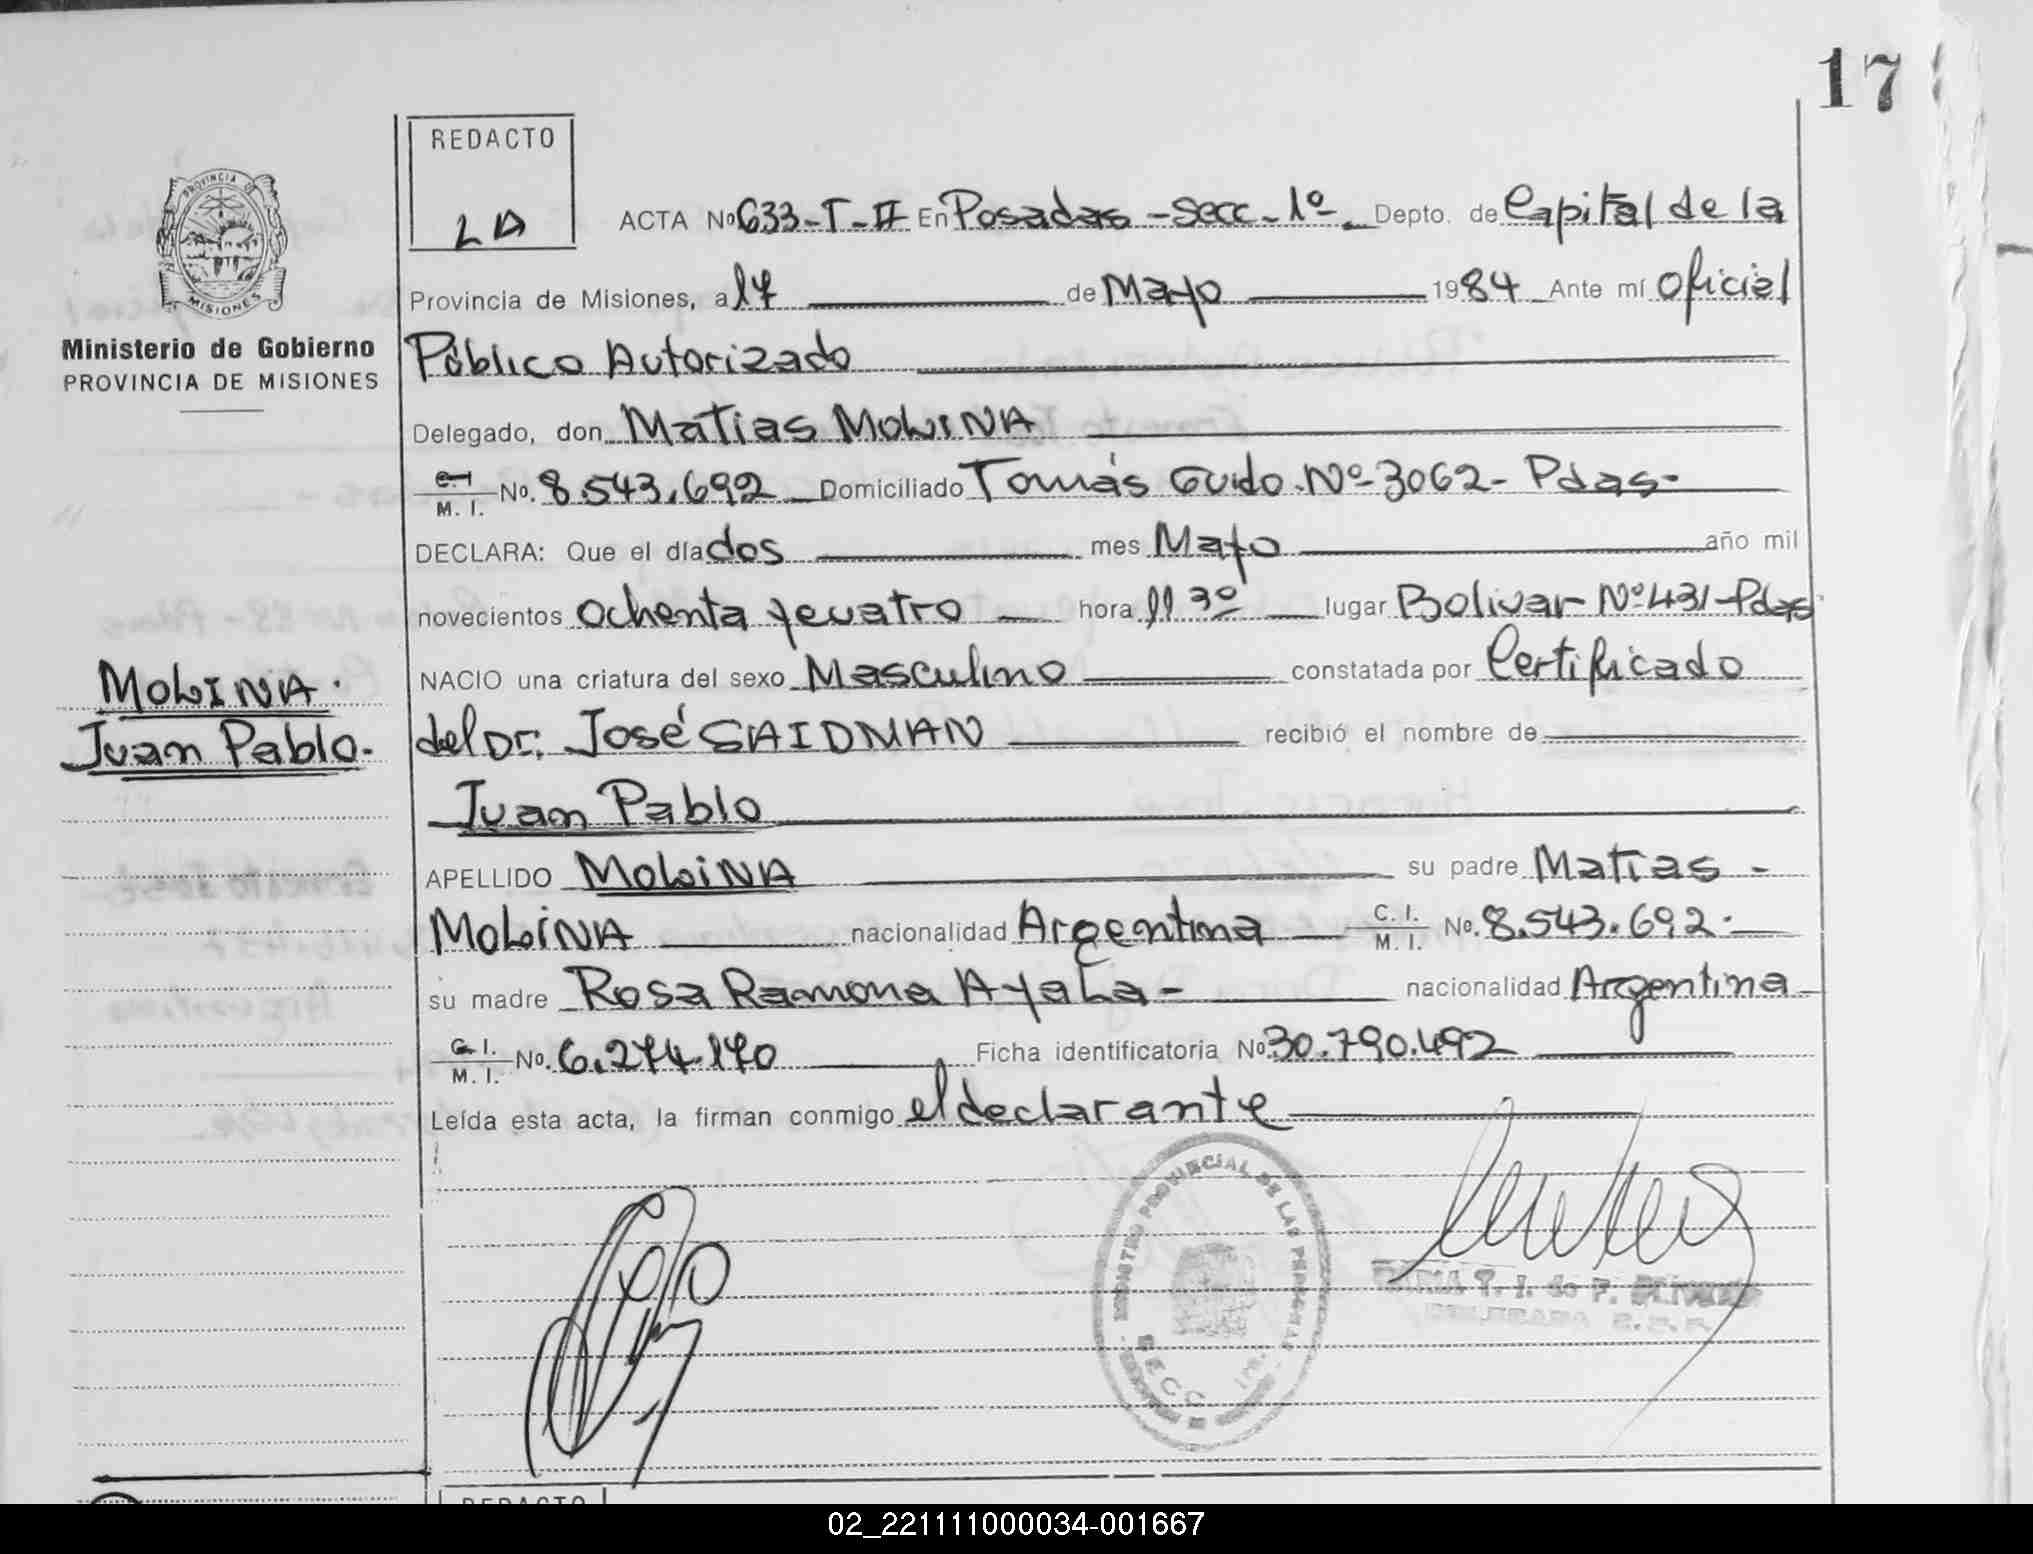 17
REDACTO
LA
ACTA Nº 633-T-II En Posadas - Secc. 1º - Depto. de Capital de la
Provincia de Misiones, a 17 de Mayo 1984 Ante mí Oficial
Público Autorizado
Delegado, don Matias MOLINA
C.I. M. I. No. 8.543.692 Domiciliado Tomás Guido Nº 3062 - Pdas-
DECLARA: Que el día dos mes Mayo año mil
novecientos ochenta y cuatro hora 11 30 lugar Bolivar Nº 431 - Pdas
NACIO una criatura del sexo Masculino constatada por Certificado
del Dr. José SAIDMAN recibió el nombre de
Juan Pablo
APELLIDO MOLINA su padre Matias -
MOLINA nacionalidad Argentina C. I. M. I. No. 8.543.692.-
su madre Rosa Ramona Ayala - nacionalidad Argentina
C. I. M. I. No. 6.274.170 Ficha identificatoria Nº 30.790.492
Leída esta acta, la firman conmigo el declarante
PROVINCIA DE
MISIONES
Ministerio de Gobierno
PROVINCIA DE MISIONES
MOLINA.
Juan Pablo.
REGISTRO PROVINCIAL DE LAS PERSONAS
SECC. 1ra.
T. I. de F.
REDACTO
02_221111000034-001667